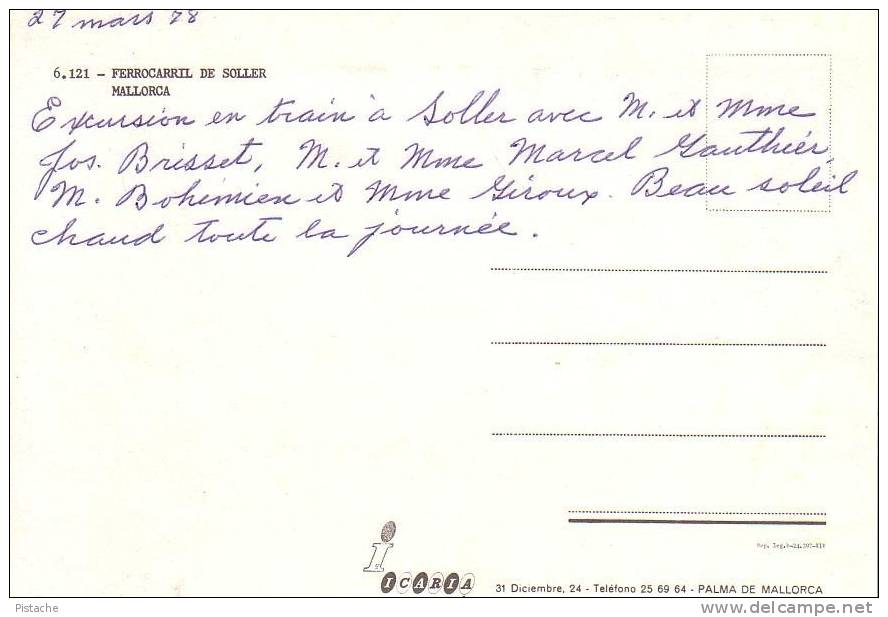 27 mars 78
6.121 - FERROCARRIL DE SOLLER
MALLORCA
Excursion en train à Soller avec M. et Mme
Jos. Brisset, M. et Mme Marcel Gauthier,
M. Bohémien et Mme Giroux. Beau soleil
chaud toute la journée.
ICARIA
31 Diciembre, 24 - Teléfono 25 69 64 - PALMA DE MALLORCA
Pistache
www.delcampe.net